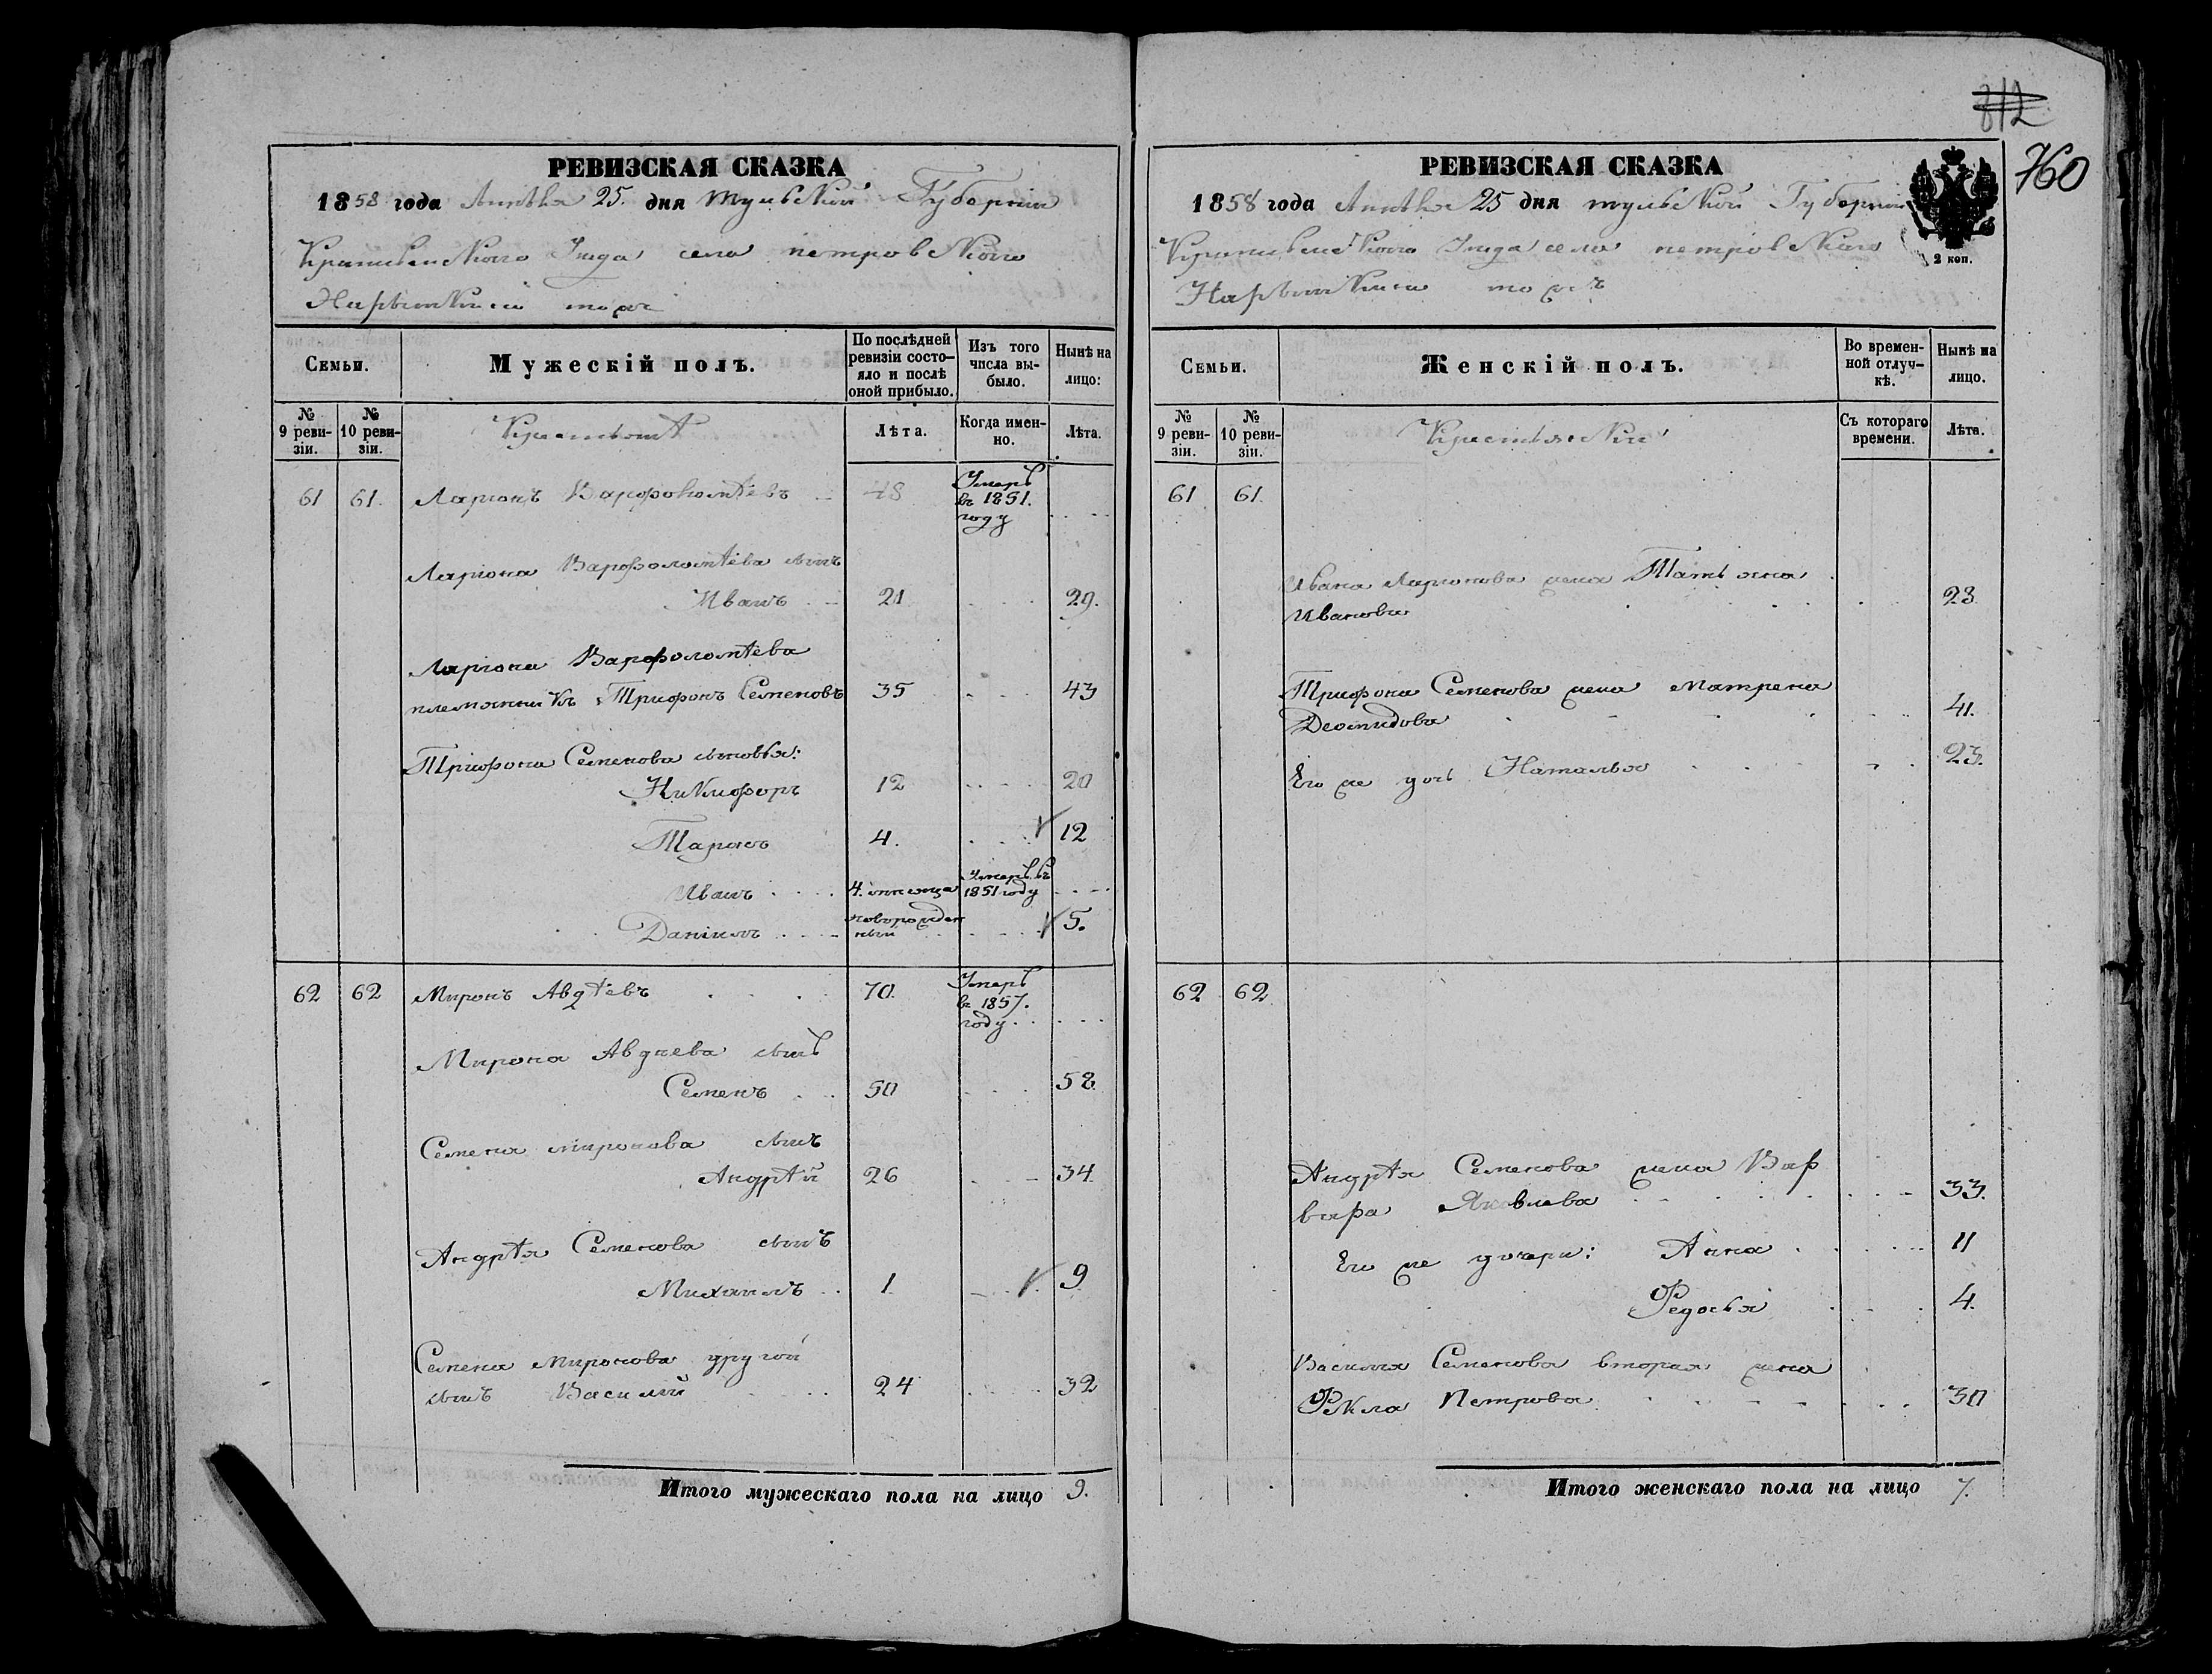 812
760
РЕВИЗСКАЯ СКАЗКА
1858 года Апрѣля 25. дня Тульской Губерніи
Крапивенскаго Уѣзда села петровскаго
тожъ
Семьи.
Мужескій полъ.
По послѣдней ревизіи состояло и послѣ оной прибыло.
Изъ того числа выбыло.
Нынѣ на лицо:
№ 9 ревизіи.
№ 10 ревизіи.
Крестьянѣ
Лѣта.
Когда именно.
Лѣта.
61 61. Ларіонъ Варфоломѣевъ 48 Умеръ
въ 1851.
году
Ларіона Варфоломѣева сынъ
Иванъ 21 29.
Ларіона Варфоломѣева
племянникъ Трифонъ Семеновъ 35 43
Трифона Семенова сыновья:
Никифоръ 12 20
Тарасъ 4. 12
Иванъ 4. мѣсяца Умеръ въ
1851 году
Даніилъ новорожден
ный 5.
62 62 Миронъ Авдѣевъ 70. Умеръ
въ 1857.
году.
Мирона Авдѣева сынъ
Семенъ 50 58.
Семена миронова сынъ
Андрѣй 26 34.
Андрѣя Семенова сынъ
Михаилъ 1. 9.
Семена миронова другой
сынъ Василій 24 32
Итого мужескаго пола на лицо 9.
РЕВИЗСКАЯ СКАЗКА
1858 года Апрѣля 25 дня тульской Губерніи
Крапивенскаго Уѣзда села петровскаго
тожъ
2 коп.
Семьи.
Женскій полъ.
Во временной отлучкѣ.
Нынѣ на лицо.
№ 9 ревизіи.
№ 10 ревизіи.
Крестьянки
Съ котораго времени.
Лѣта.
61 61.
Ивана Ларионова жена Татьяна
Иванова 23.
Трифона Семенова жена матрена
Деомидова 41.
Его же дочь Наталья 23.
62 62
Андрѣя Семенова жена Вар
вара Яковлева 33.
Его же дочери: Анна 11
Федосья 4.
Василія Семенова вторая жена
Фекла Петрова 30
Итого женскаго пола на лицо 7.